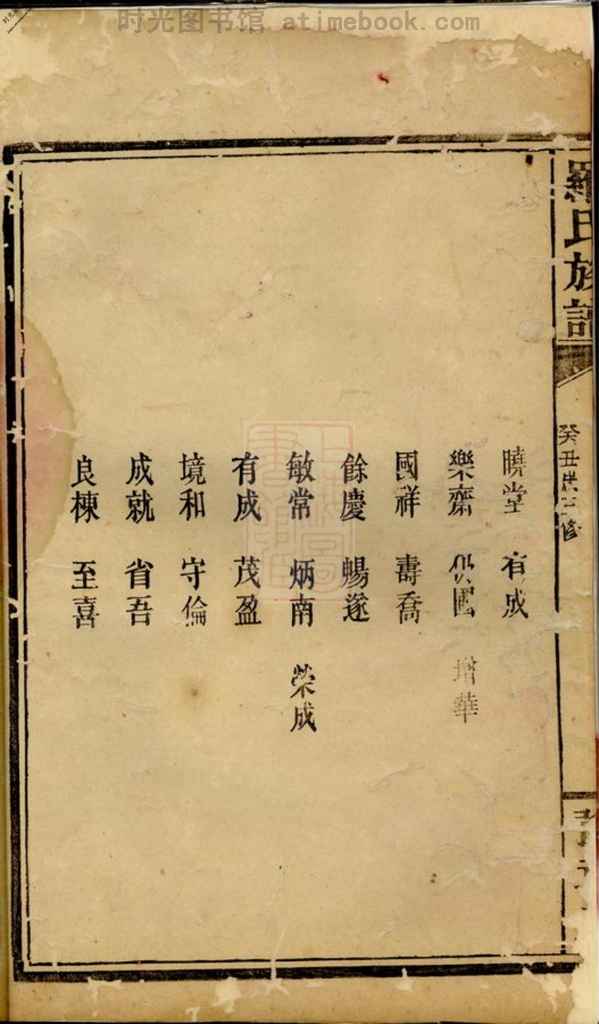 时光图书馆 atimebook.com
羅氏族譜
癸丑 三修
曉堂 有成
樂齋 國 增華
國祥 壽喬
餘慶 暢遂
敏常 炳南 榮成
有成 茂盈
境和 守倫
成就 省吾
良棟 至喜
时光图书馆 atimebook.com